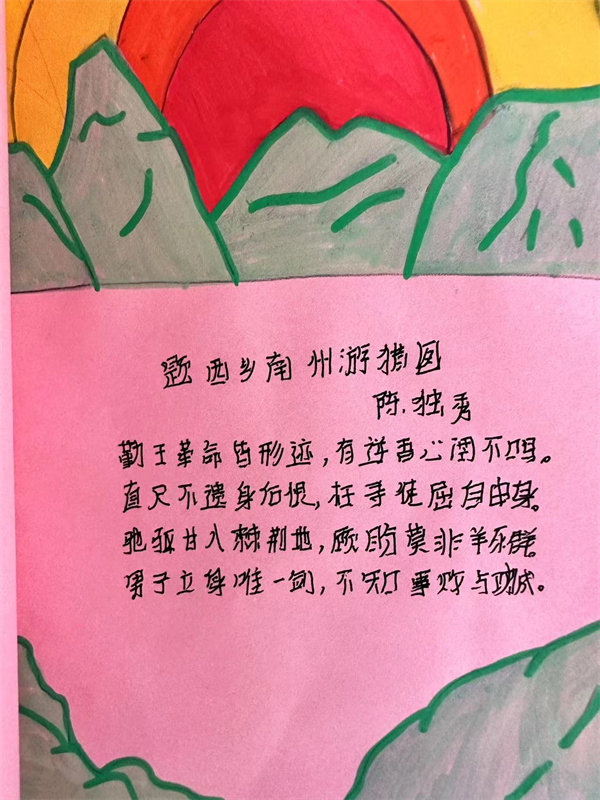 题西乡南州游猎图
陈.独秀
勤王革命皆形迹,有逆吾心罔不鸣。
直尺不遗身后恨,枉寻徒屈自由身。
驰驱甘入棘荆地,顾盼莫非羊豕群
男子立身唯一剑,不知事败与功成。